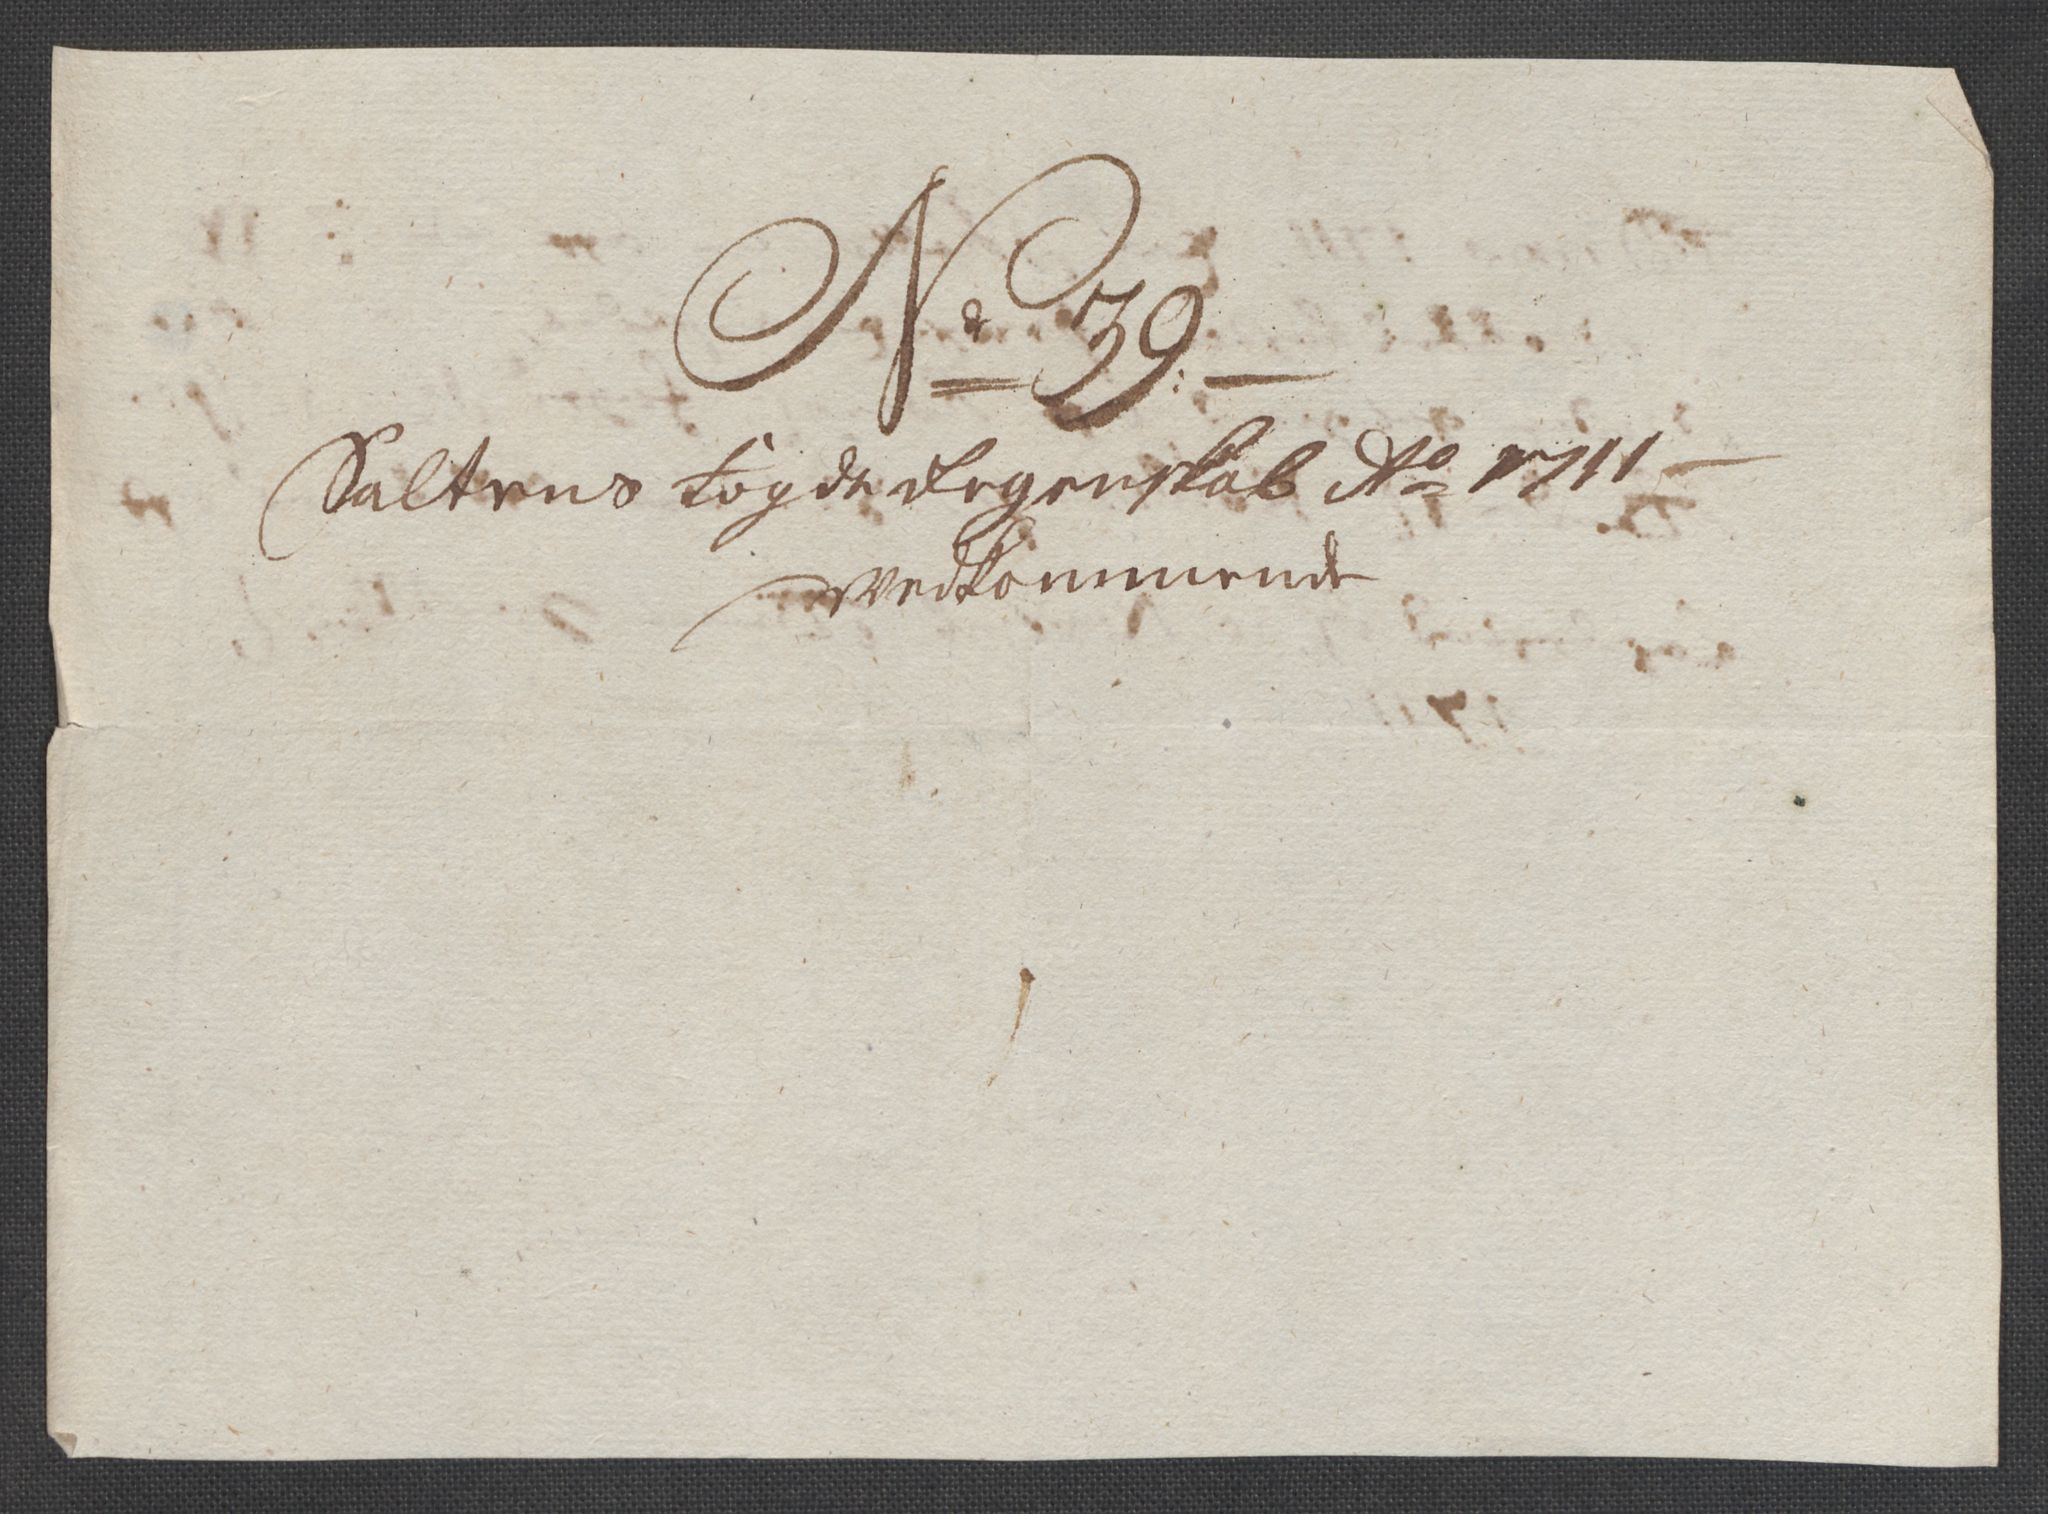 No 39:
Saltens fogderie Regenskab Ao 1711
Vedkommende